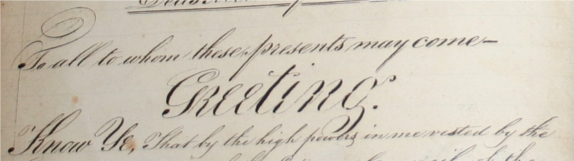 To all to whom these presents may come
Greeting.
Know Ye, That by the high powers in me vested by the